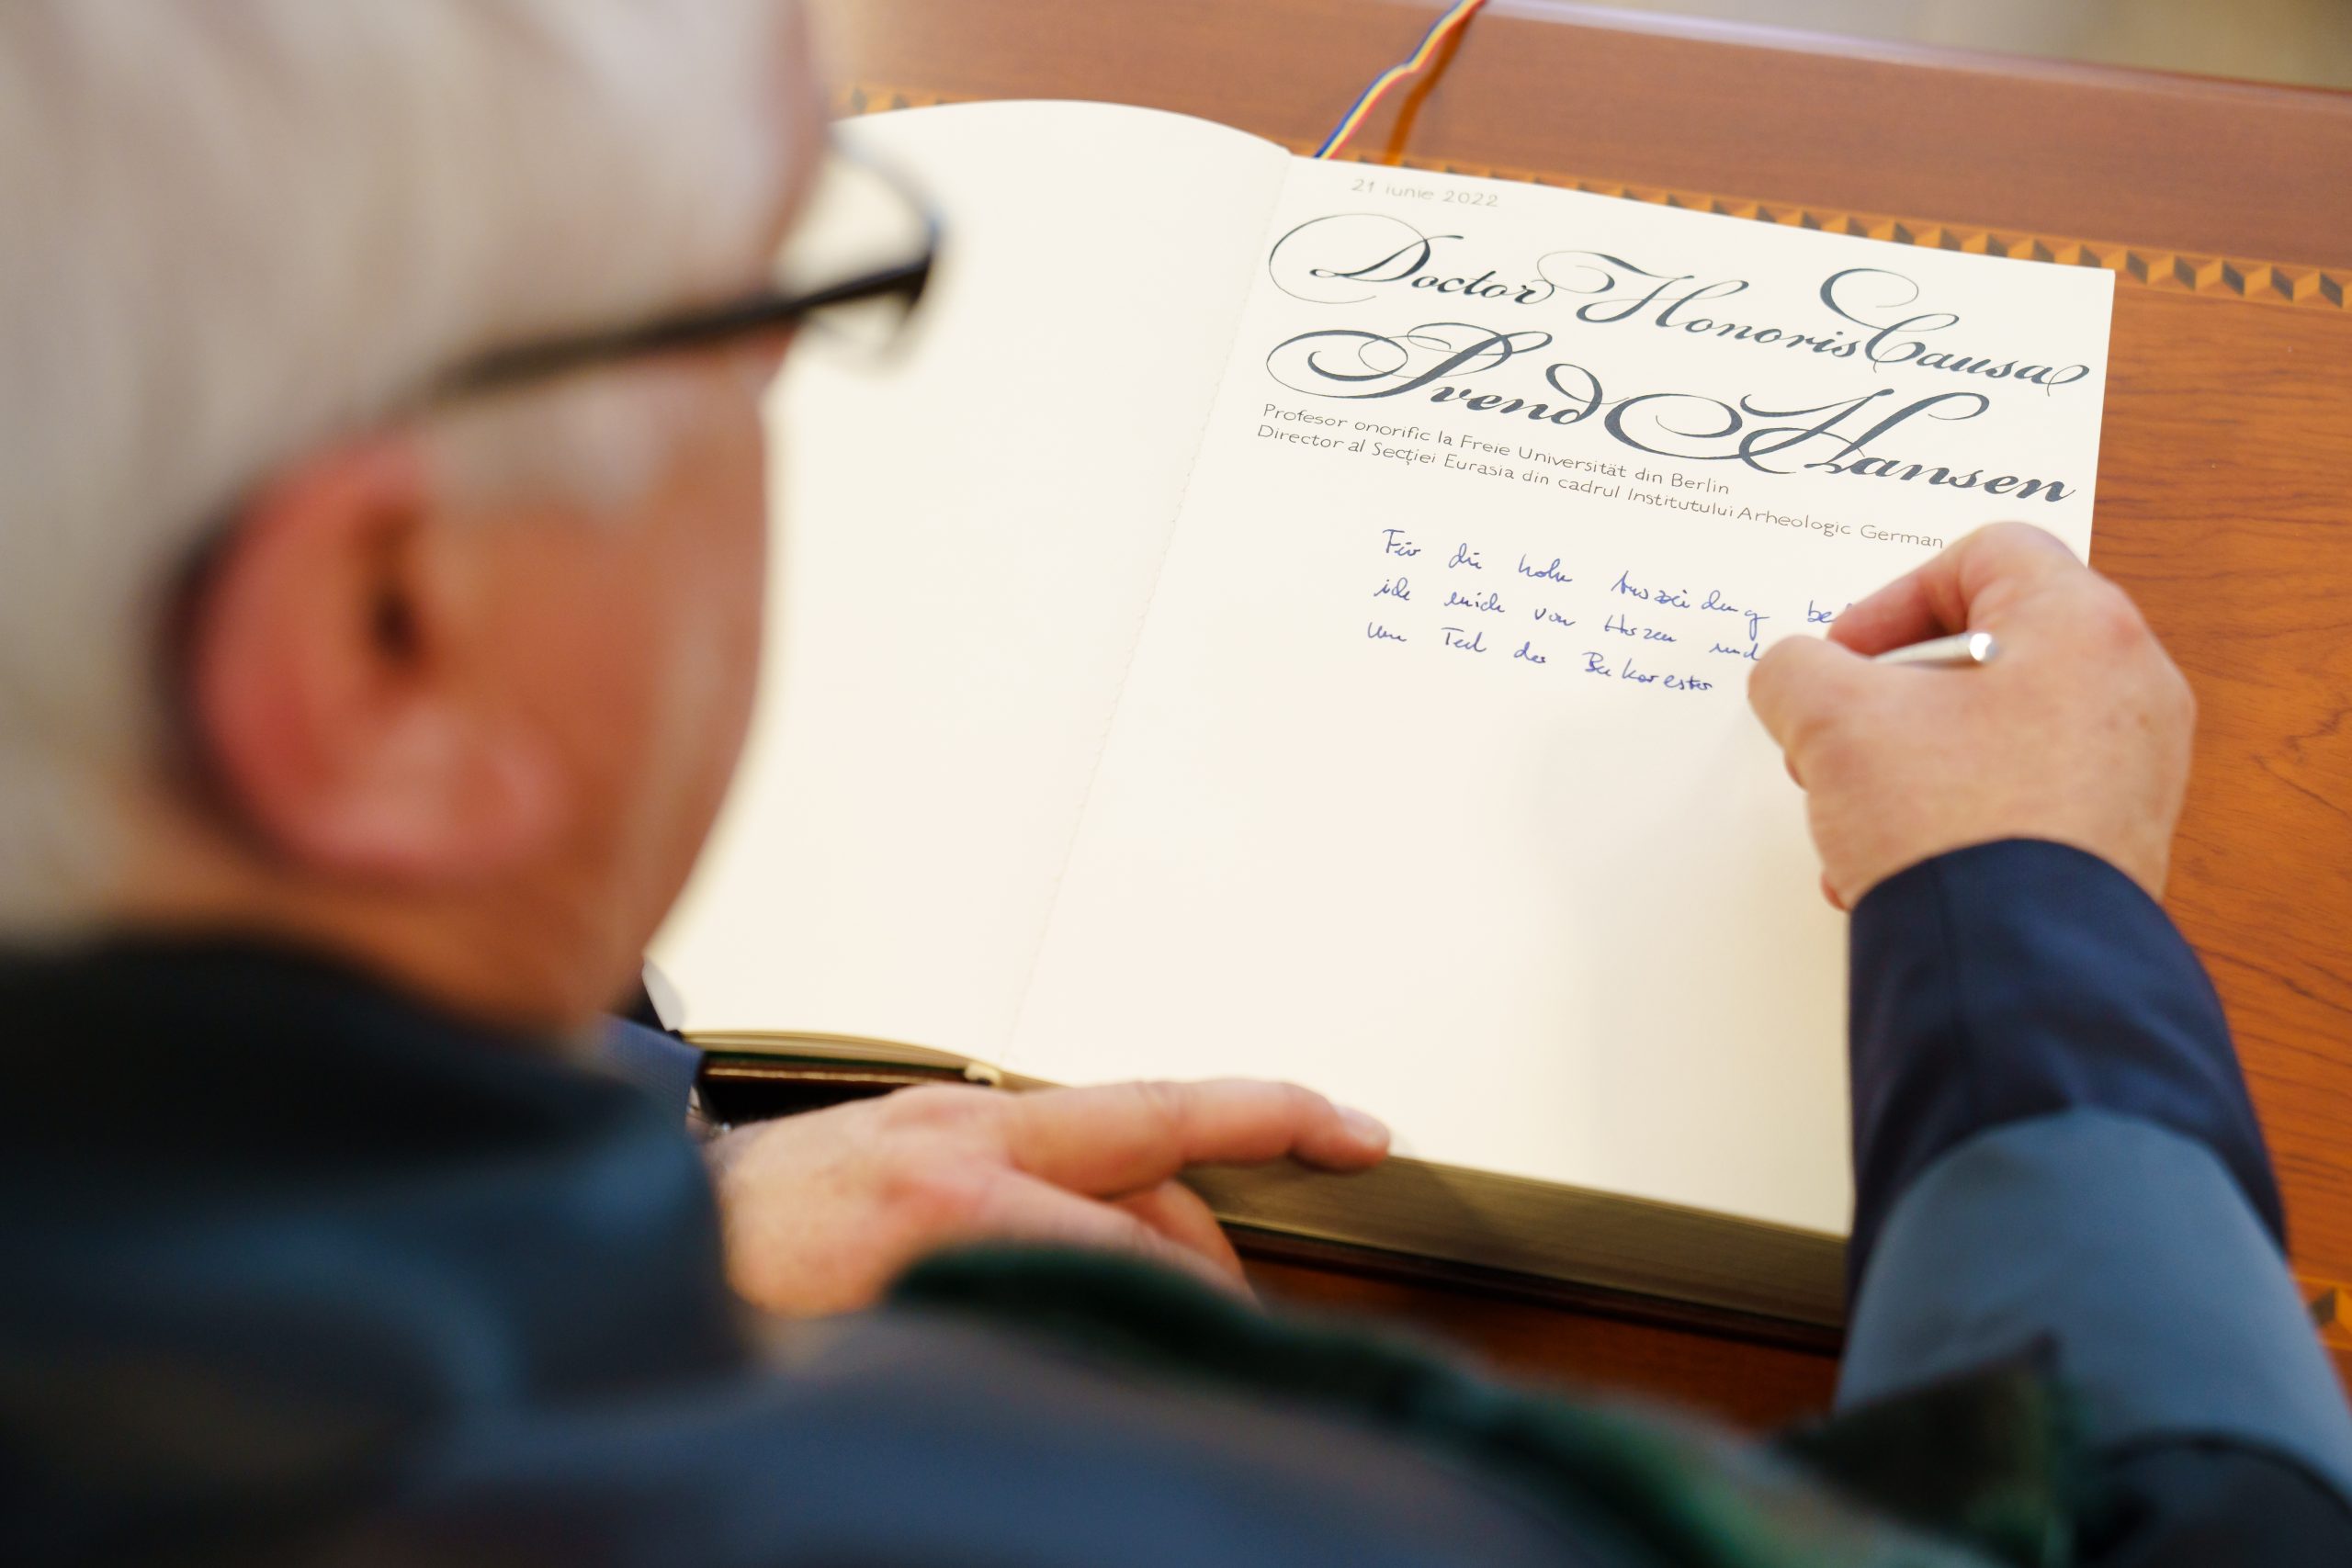 21 iunie 2022
Doctor Honoris Causa
Svend Hansen
Profesor onorific la Freie Universität din Berlin
Director al Secției Eurasia din cadrul Institutului Arheologic German
Für die hohe Auszeichnung
ich mich von Herzen und
Teil der Bukarester